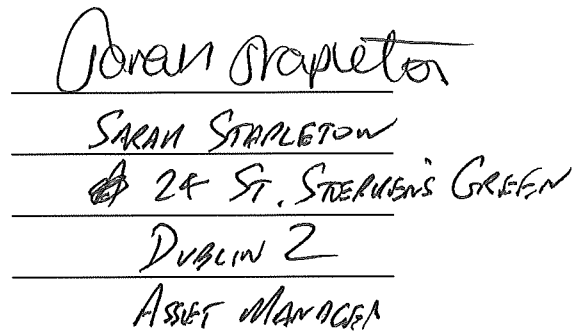 Sarah Stapleton
SARAH STAPLETON
24 ST. STEPHEN'S GREEN
DUBLIN 2
ASSET MANAGER